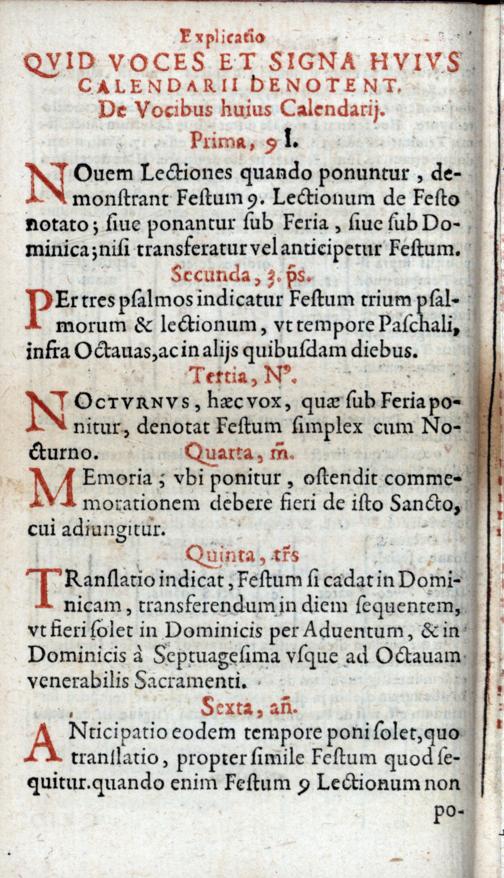 Explicatio
QVID VOCES ET SIGNA HVIVS
CALENDARII DENOTENT.
De Vocibus huius Calendarij.
Prima, 9 l.
NOuem Lectiones quando ponuntur, de-
monſtrant Feſtum 9. Lectionum de Feſto
notato; ſiue ponantur ſub Feria, ſiue ſub Do-
minica; niſi transferatur vel anticipetur Feſtum.
Secunda, 3. p̃s.
PEr tres pſalmos indicatur Feſtum trium pſal-
morum & lectionum, vt tempore Paſchali,
infra Octauas, ac in alijs quibuſdam diebus.
Tertia, N⁹.
NOCTVRNVS, hæc vox, quæ ſub Feria po-
nitur, denotat Feſtum ſimplex cum No-
cturno. Quarta, m̃.
MEmoria; vbi ponitur, oſtendit comme-
morationem debere fieri de iſto Sancto,
cui adiungitur.
Quinta, tr̃s
TRanſlatio indicat, Feſtum ſi cadat in Domi-
nicam, transferendum in diem ſequentem,
vt fieri ſolet in Dominicis per Aduentum, & in
Dominicis à Septuageſima vſque ad Octauam
venerabilis Sacramenti.
Sexta, añ.
ANticipatio eodem tempore poni ſolet, quo
tranſlatio, propter ſimile Feſtum quod ſe-
quitur. quando enim Feſtum 9 Lectionum non
po-